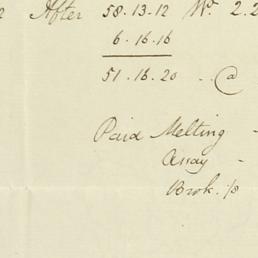 After 58.13.12 Wt. 2.2
6.16.16
51.16.20 .. @
Paid Melting -
Assay -
Brok. /8